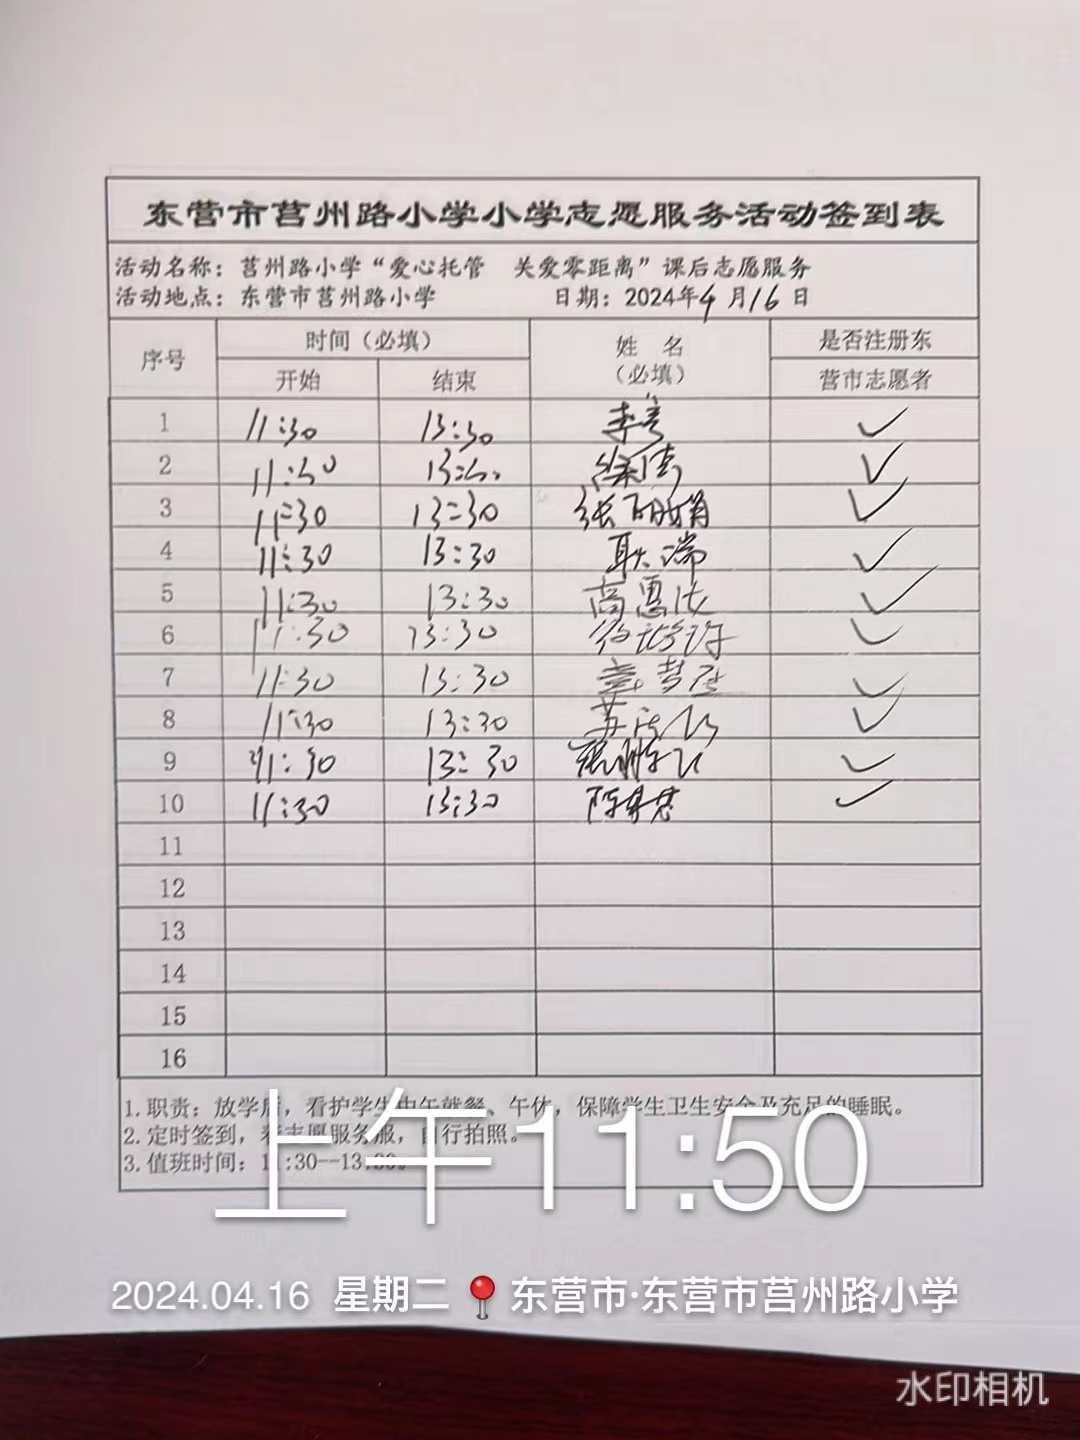 东营市莒州路小学小学志愿服务活动签到表
活动名称：莒州路小学“爱心托管 关爱零距离”课后志愿服务
活动地点：东营市莒州路小学 日期：2024年4月16日
序号 时间（必填） 姓 名（必填） 是否注册东营市志愿者
开始 结束
1 11:30 13:30 ✓
2 11:30 13:30 徐倩 ✓
3 11:30 13:30 张丽娟 ✓
4 11:30 13:30 耿瑞 ✓
5 11:30 13:30 高惠 ✓
6 11:30 13:30 ✓
7 11:30 13:30 ✓
8 11:30 13:30 苏 ✓
9 11:30 13:30 ✓
10 11:30 13:30 陈 ✓
11
12
13
14
15
16
1.职责：放学后，看护学生中午就餐、午休，保障学生卫生安全及充足的睡眠。
2.定时签到，志愿服务服，自行拍照。
3.值班时间：11:30--13:30。
上午11:50
2024.04.16 星期二 📍东营市·东营市莒州路小学
水印相机